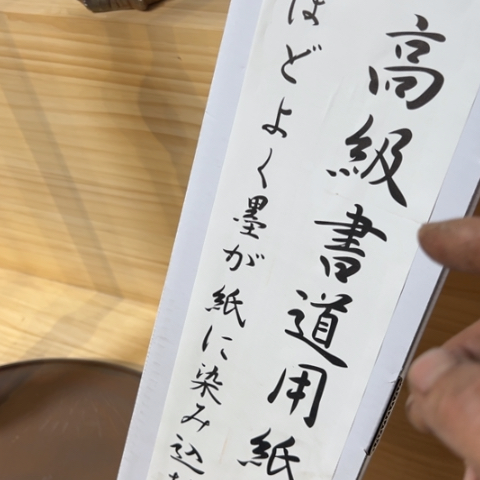 高級書道用紙
ほどよく墨が紙に染み込